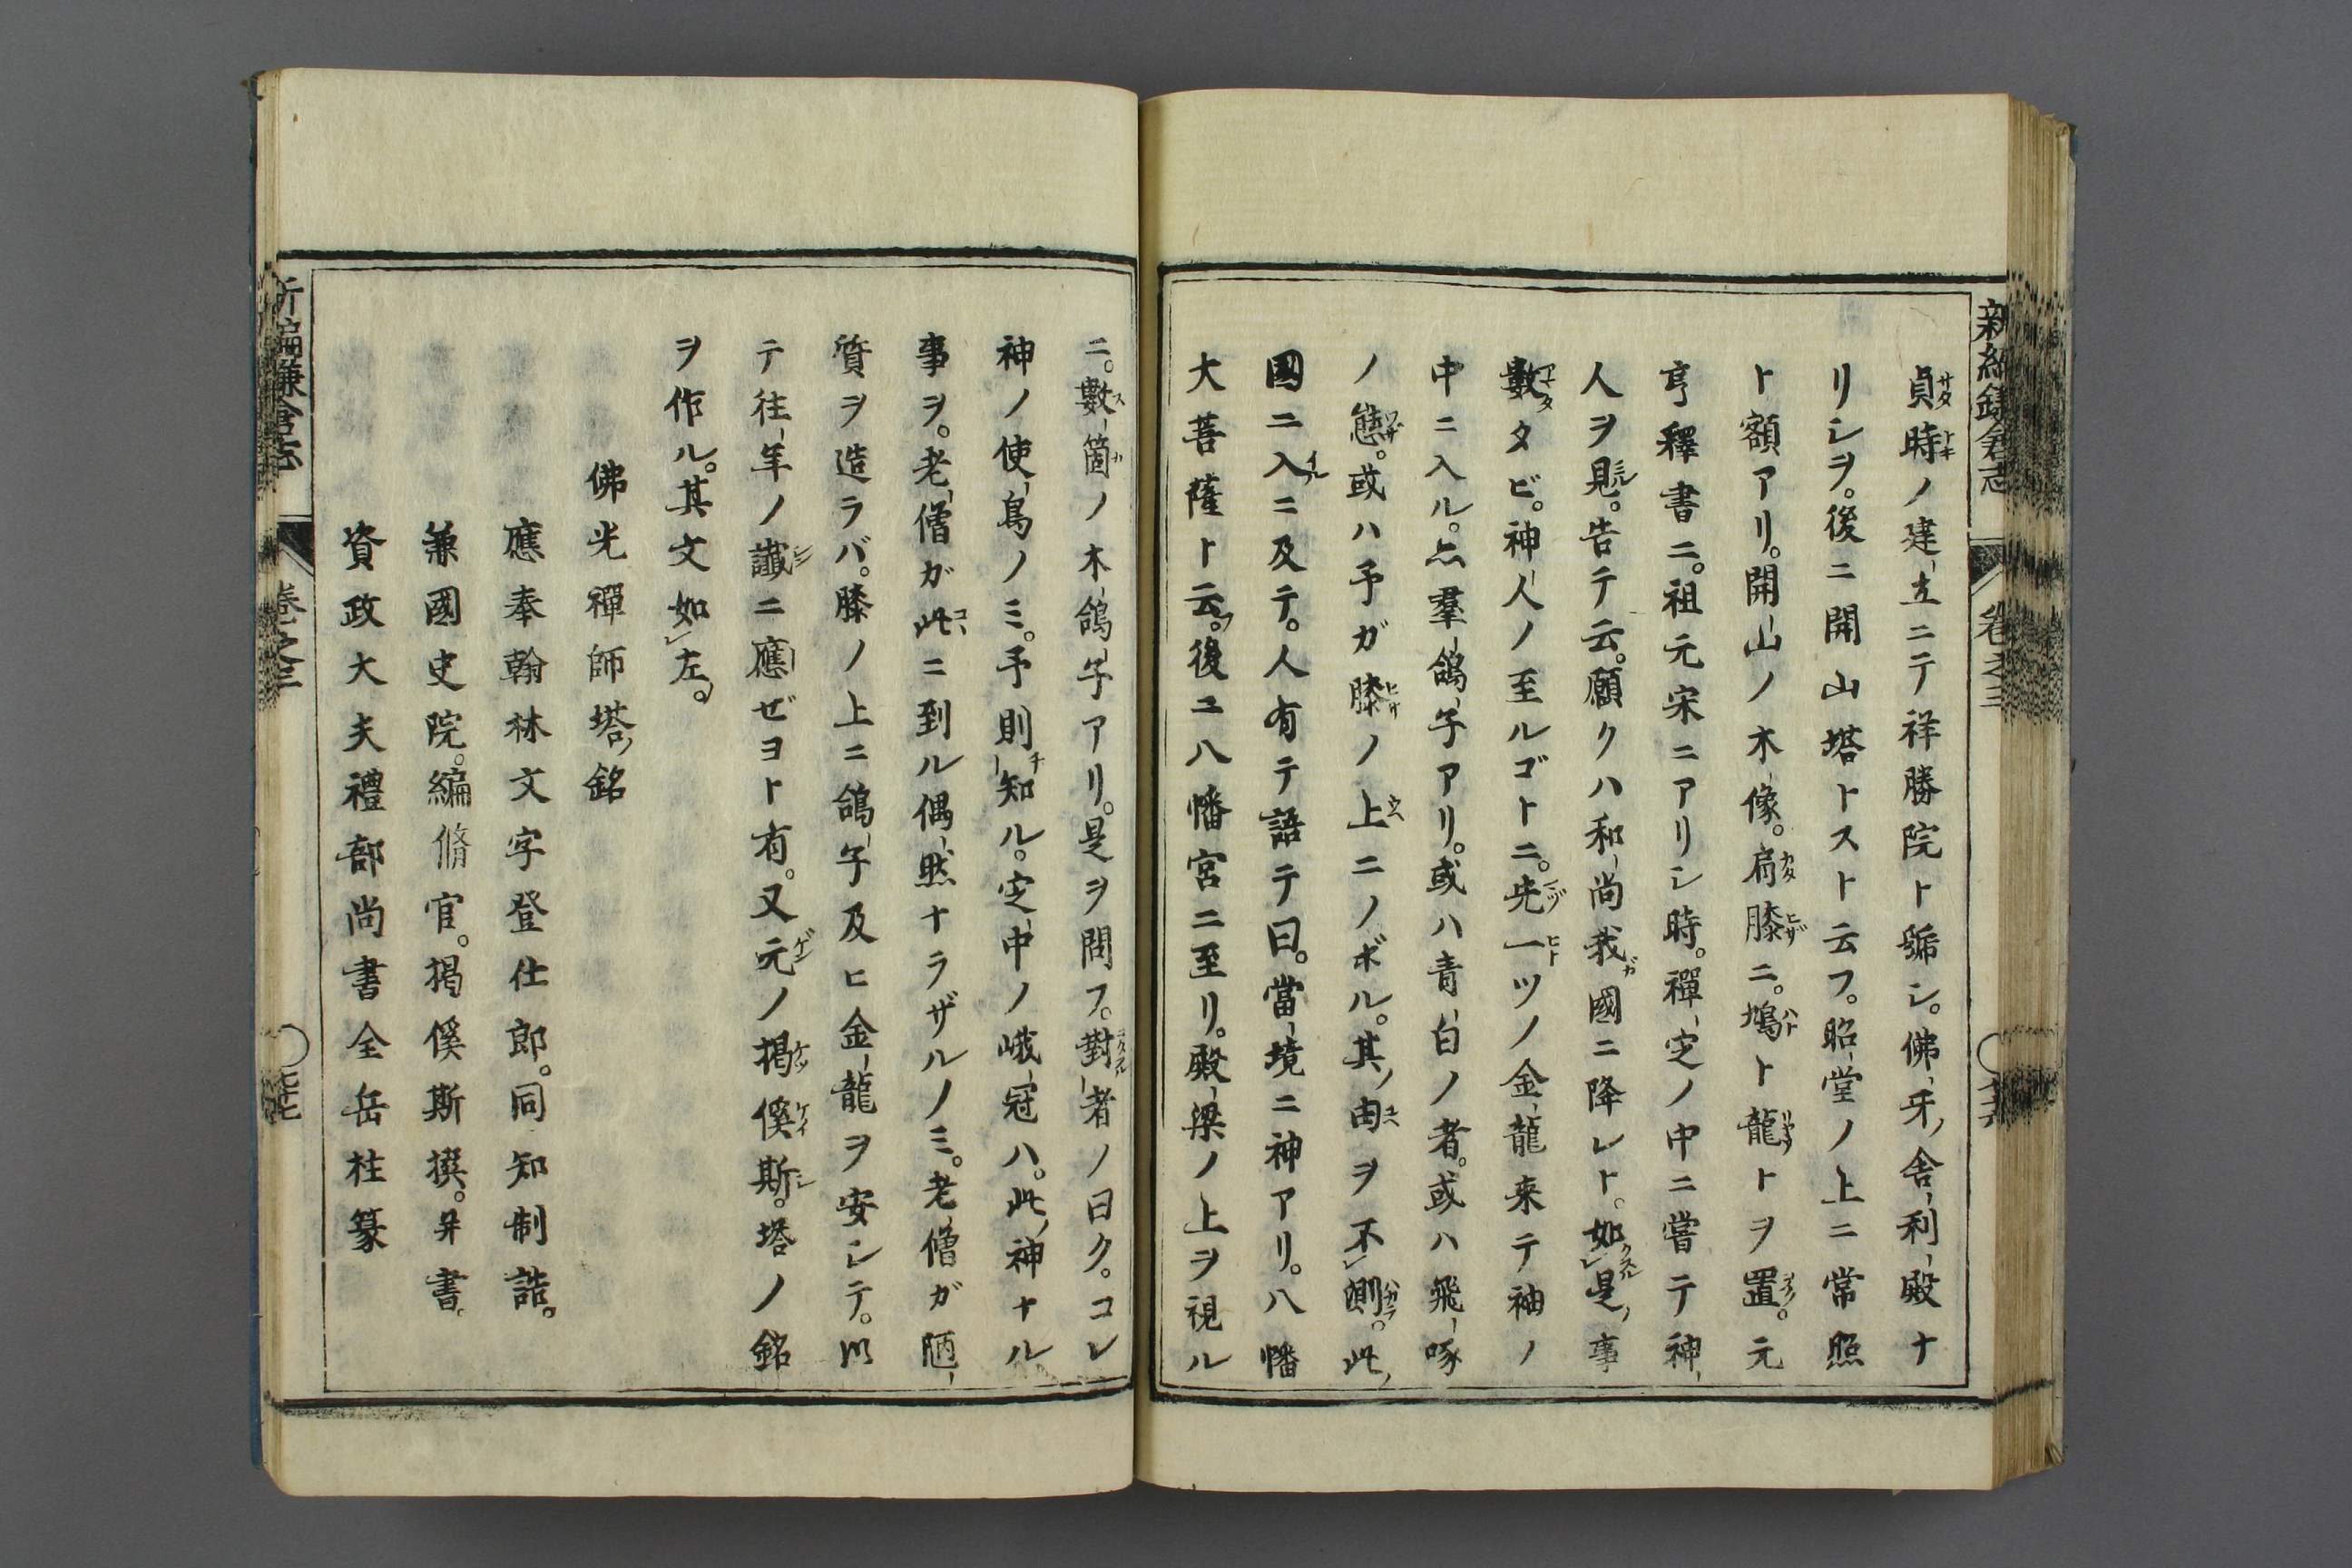 新編鎌倉志
卷之三
貞時ノ建立ニテ祥勝院ト號シ。佛牙ノ舎利殿ナ
リシヲ。後ニ開山塔トスト云フ。昭堂ノ上ニ常照
ト額アリ。開山ノ木像。肩膝ニ。鳩ト龍トヲ置。元
亨釋書ニ。祖元宋ニアリシ時。禪定ノ中ニ嘗テ神
人ヲ見。告テ云。願クハ和尚我國ニ降レト。如是ノ事
數タビ。神人ノ至ルゴトニ。先一ツノ金龍来テ袖ノ
中ニ入ル。亦羣鴿子アリ。或ハ青白ノ者。或ハ飛啄
ノ態。或ハ予ガ膝ノ上ニノボル。其ノ由ヲ不測。此ノ
國ニ入ニ及テ。人有テ語テ曰。當境ニ神アリ。八幡
大菩薩ト云フ。後ニ八幡宮ニ至リ。殿梁ノ上ヲ視ル
ニ。數箇ノ木鴿子アリ。是ヲ問フ。對者ノ曰ク。コレ
神ノ使鳥ノミ。予則知ル。定中ノ峨冠ハ。此ノ神ナル
事ヲ。老僧ガ此ニ到ル偶然ナラザルノミ。老僧ガ陋
質ヲ造ラバ。膝ノ上ニ鴿子及ヒ金龍ヲ安シテ。以
テ往年ノ讖ニ應ゼヨト有。又元ノ掲傒斯。塔ノ銘
ヲ作ル。其文如左。
佛光禪師塔ノ銘
應奉翰林文字登仕郎。同知制誥。
兼國史院。編脩官。掲傒斯撰。并書。
資政大夫禮部尚書全岳柱篆
新編鎌倉志
卷之三
七七